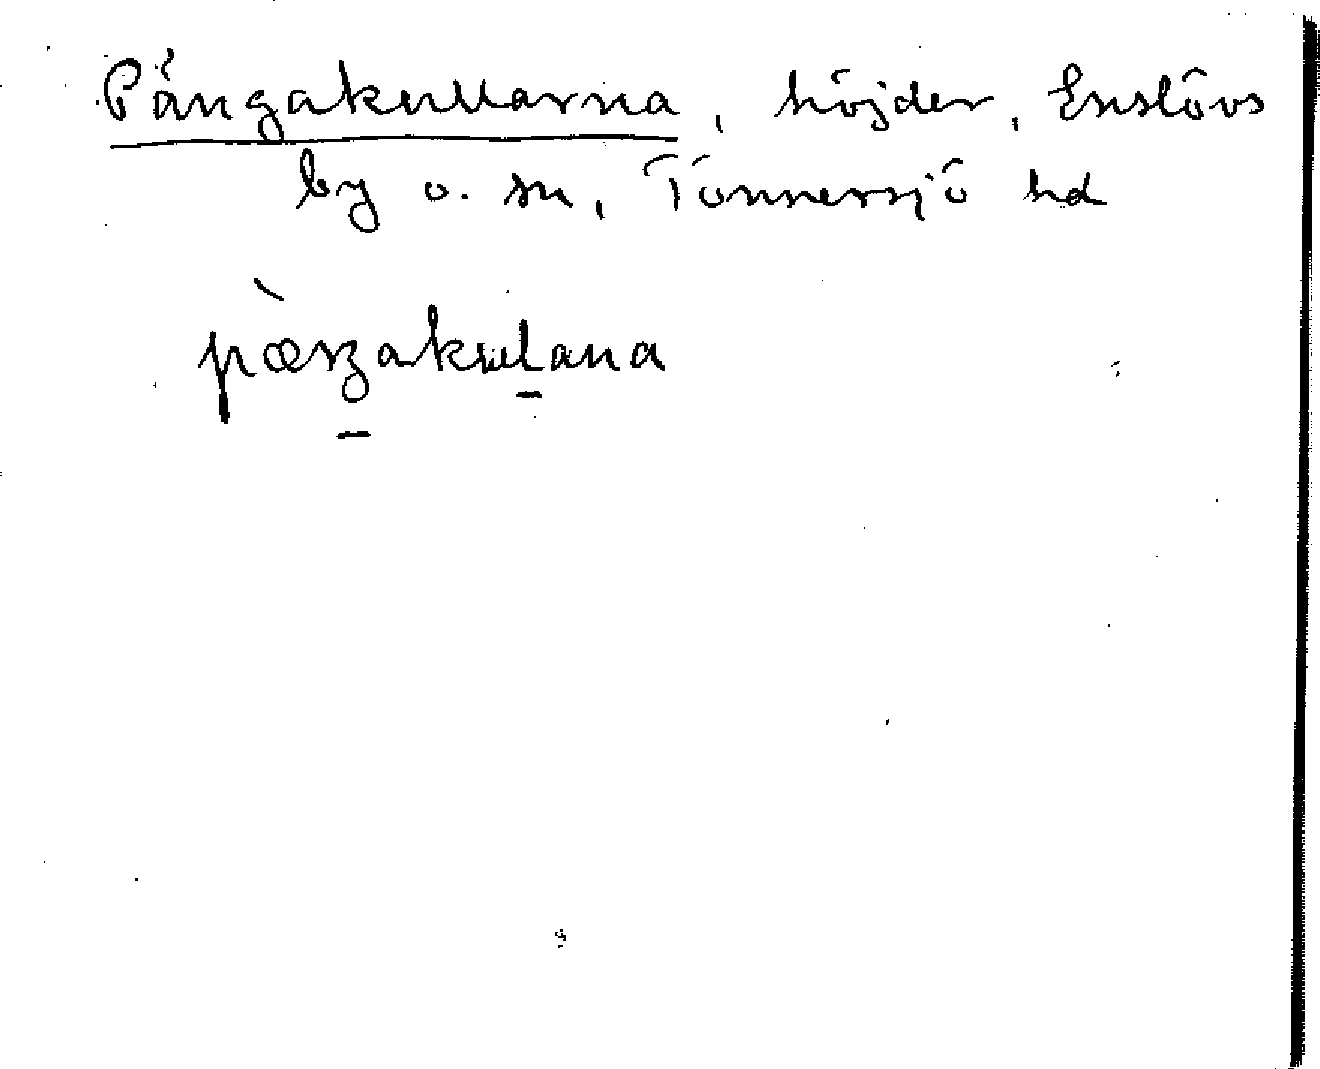 Pångakullarna, höjder, Enslövs
by o. sn, Tönnersjö hd
pæŋakulana